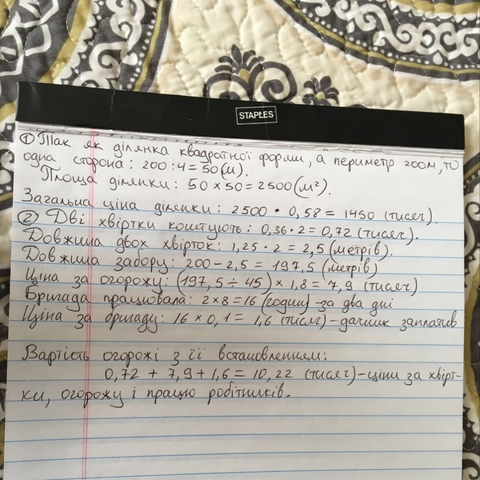 STAPLES
① Так як ділянка квадратної форми, а периметр 200м, то
одна сторона: 200:4=50(м).
Площа ділянки: 50×50=2500(м²).
Загальна ціна ділянки: 2500·0,58=1450 (тисяч).
② Дві хвіртки коштують: 0,36·2=0,72 (тисяч).
Довжина двох хвірток: 1,25·2=2,5 (метрів).
Довжина забору: 200-2,5=197,5 (метрів)
Ціна за огорожу: (197,5÷45)×1,8=7,9 (тисяч)
Бригада працювала: 2×8=16 (годин)-за два дні
Ціна за бригаду: 16×0,1=1,6 (тисяч)-дачник заплатив
Вартість огорожі з її встановленням:
0,72+7,9+1,6=10,22 (тисяч)-ціни за хвірт-
ки, огорожу і працю робітників.